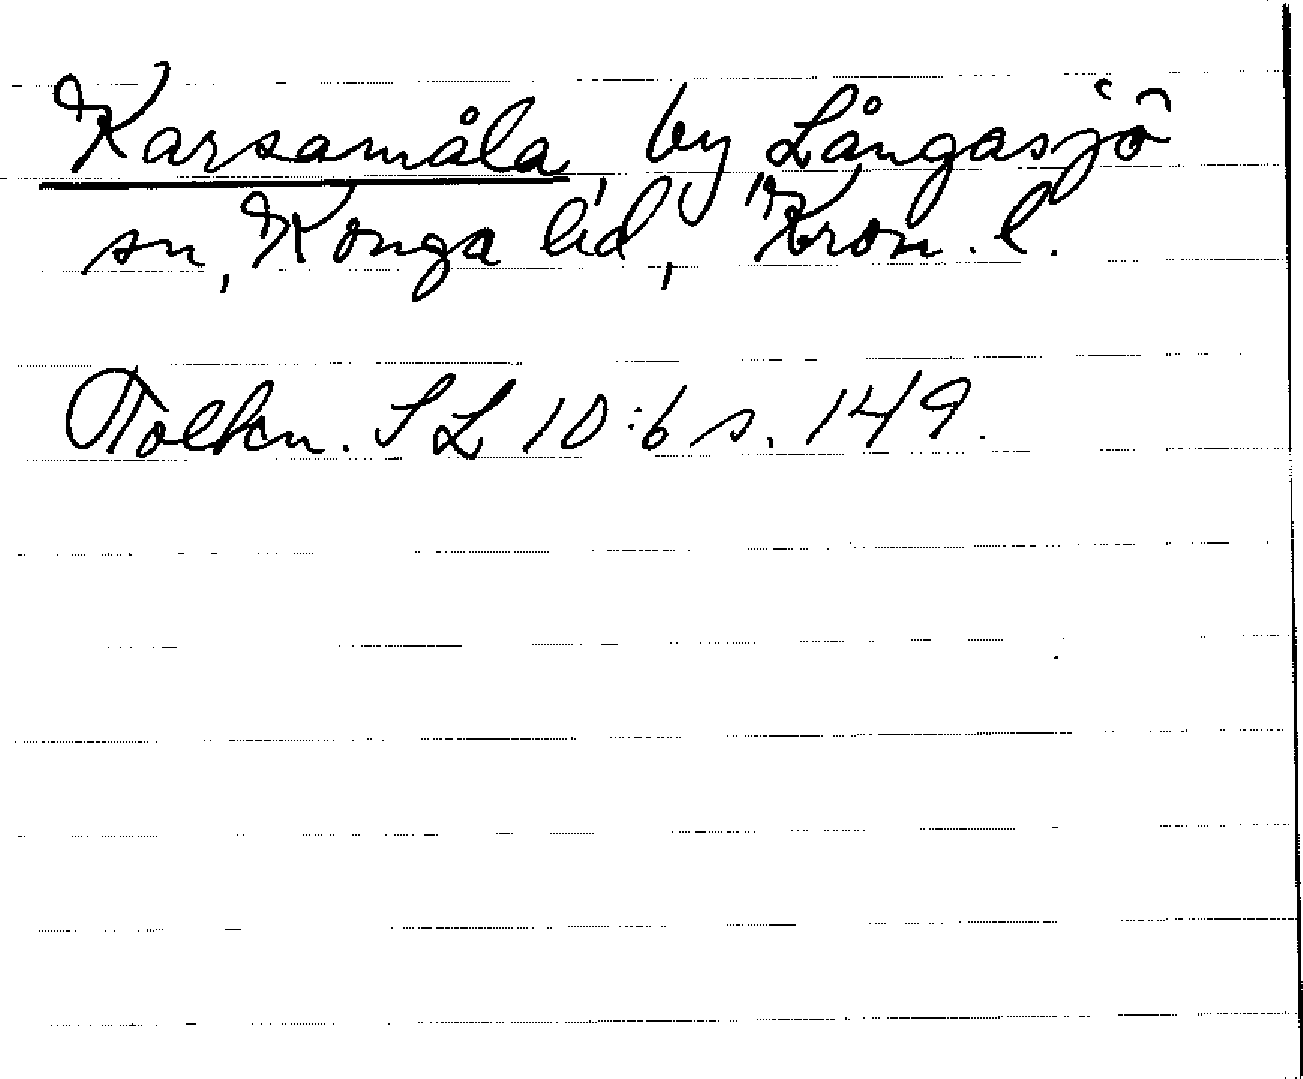 Karsamåla, by, Långasjö
sn, Konga hd, Kron. l.
Tolkn. SL 10:6 s. 149.